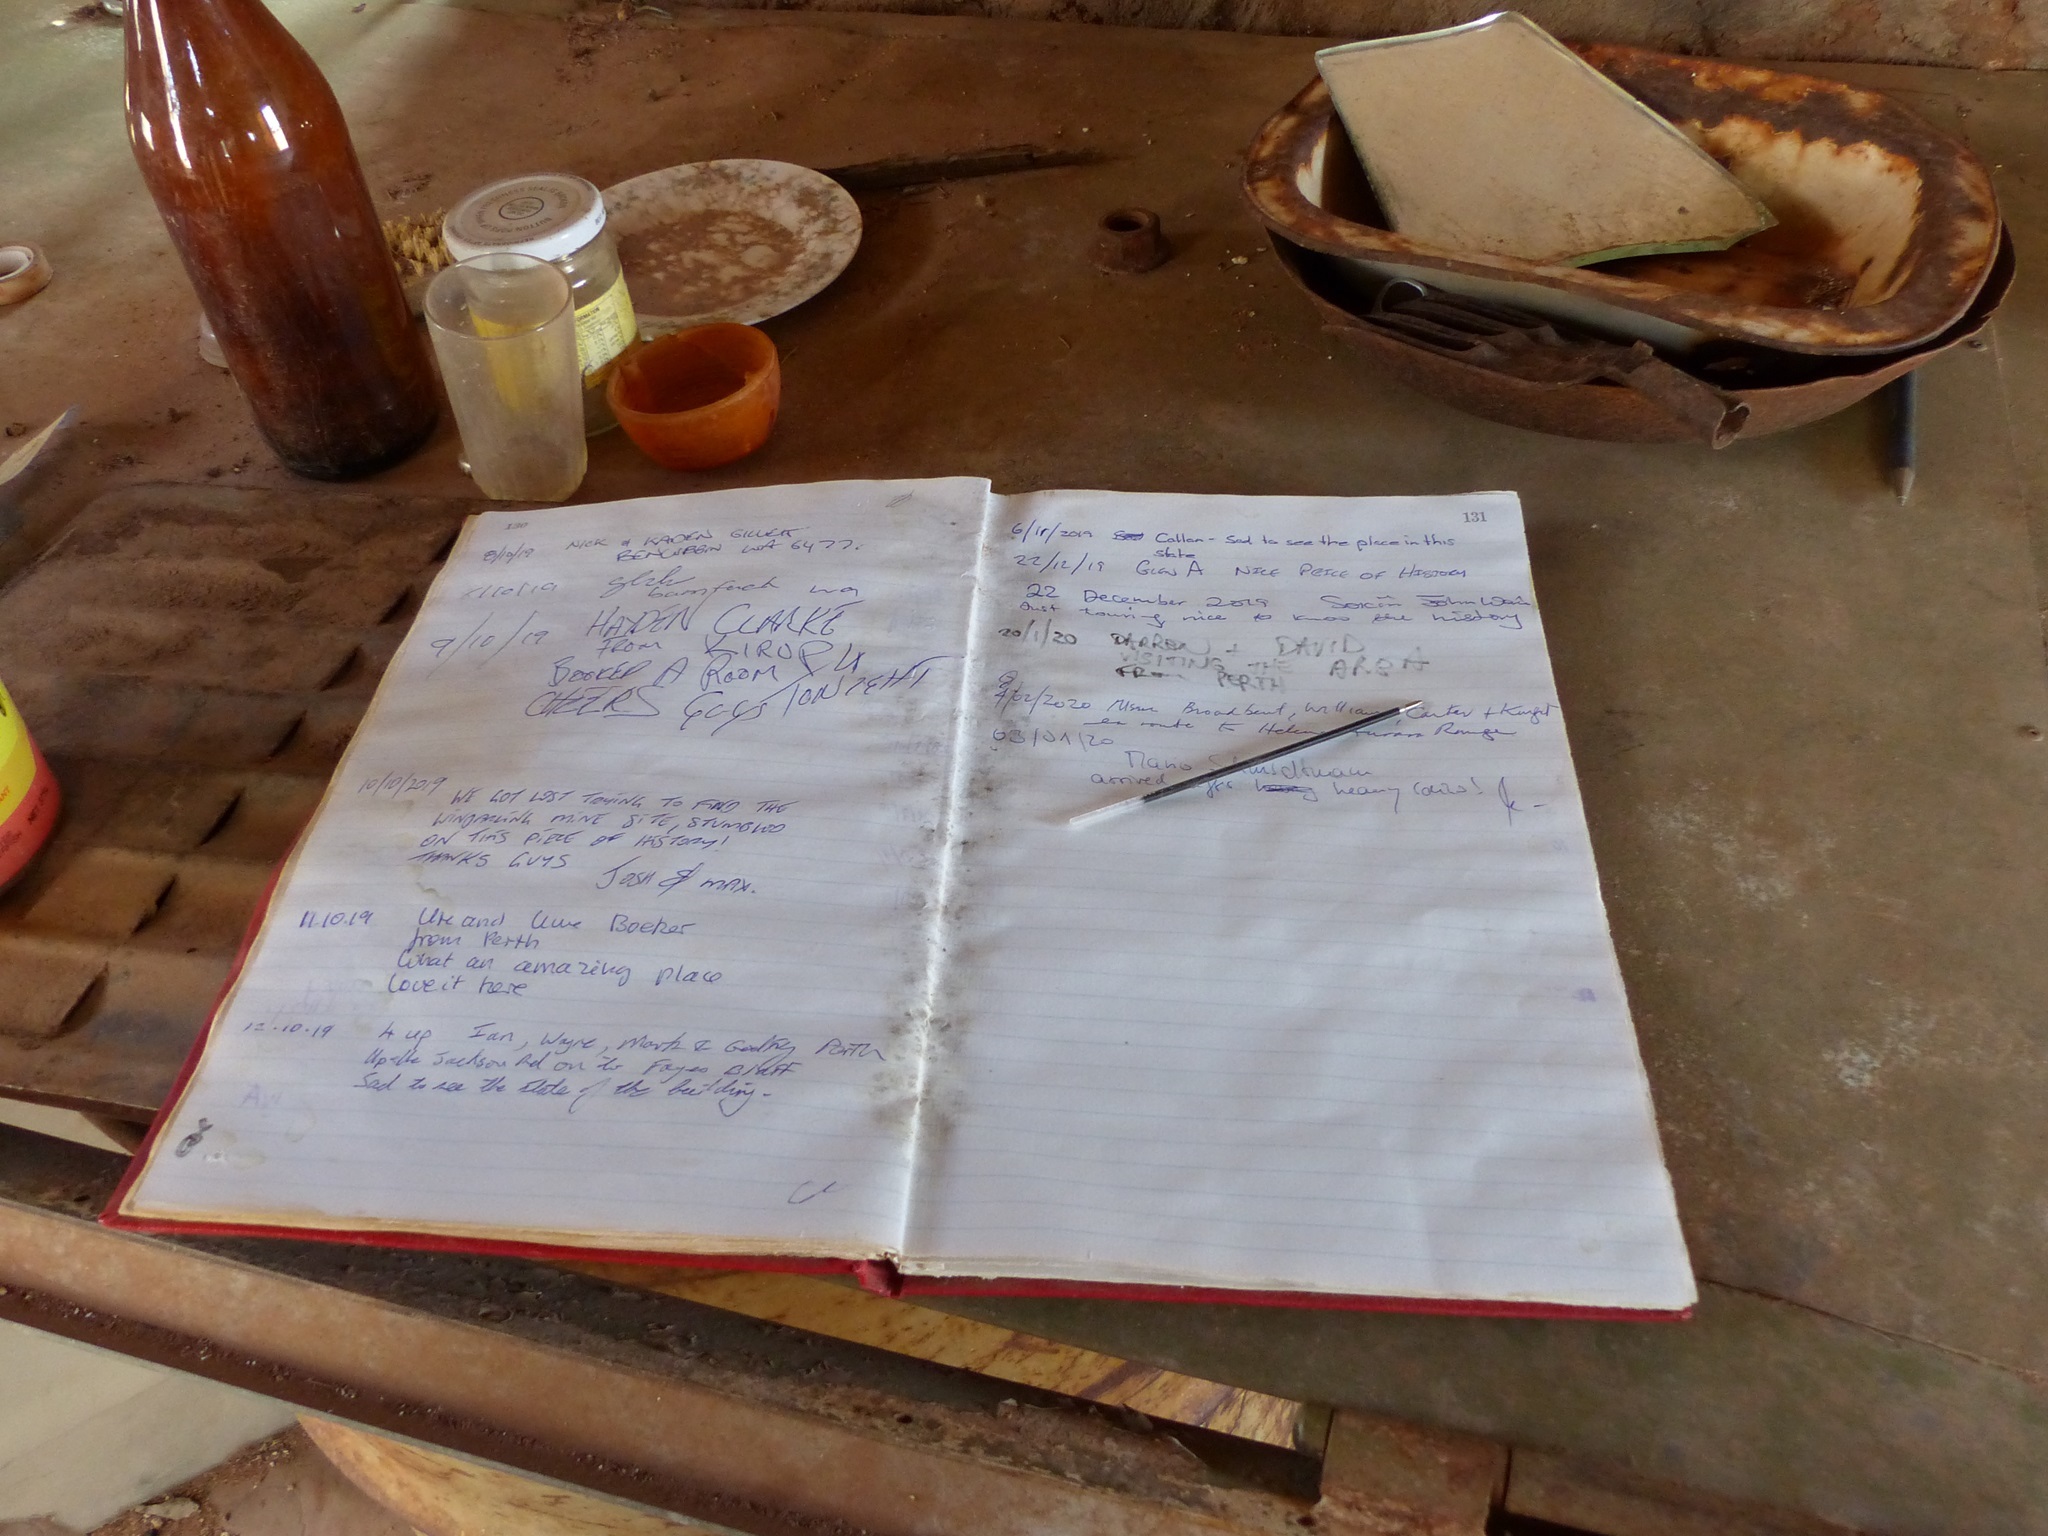 130
8/10/19 NICK & KADEN GILLETT
BENCUBBIN WA 6477.
wa
9/10/19 HAYDEN CLARKE
FROM KIRUP
BOOKED A ROOM
CHEERS GUYS TONIGHT
10/10/2019
WE GOT LOST TRYING TO FIND THE
WINDARLING MINE SITE, STUMBLED
ON THIS PIECE OF HISTORY!
THANKS GUYS
JOSH & MAX.
11.10.19 Ute and Uwe Boeker
from Perth
What an amazing place
Love it here
12.10.19 4 up Ian, Wayne, Mark & Godfrey Perth
Up the Jackson Rd on to
Sad to see the state of the building.
131
6/11/2019 Callan - Sad to see the place in this
state
22/12/19 GLEN A NICE PEICE OF HISTORY
22 December 2019 John
Just touring nice to know the history
20/1/20 DARREN + DAVID
VISITING THE AREA
FROM PERTH
/02/2020 Broadbent, William, Carter + Knight
en route to Helena Aurora Range
03/01/20
Mario
arrived heavy